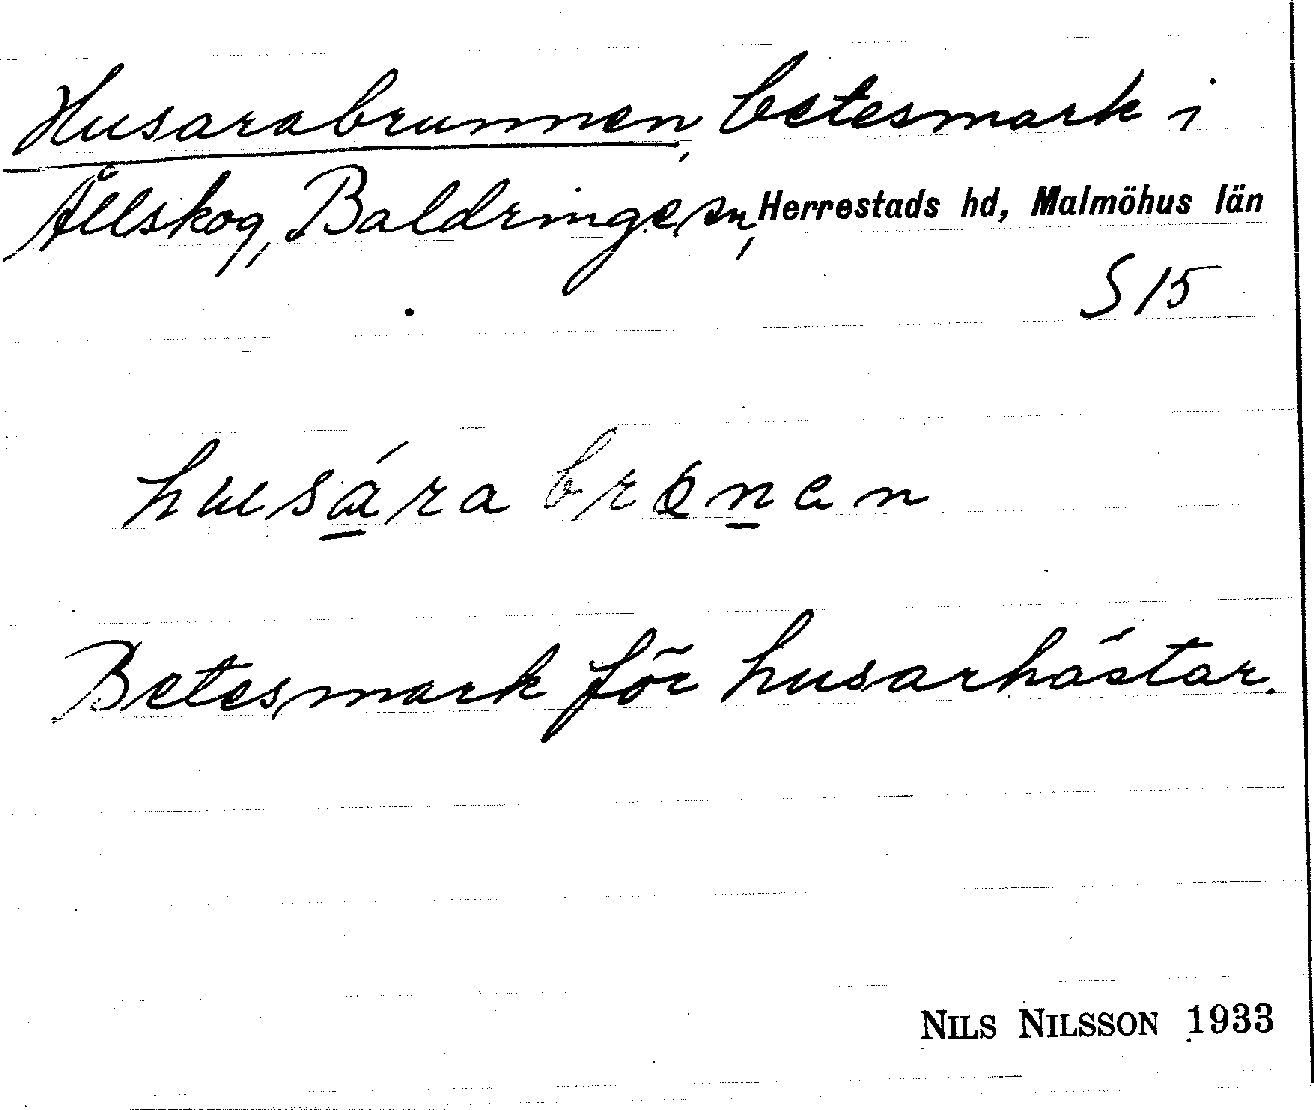 Husarabrunnen, betesmark i
Ållskog, Baldringe sn, Herrestads hd, Malmöhus län
S 15
husára bronen
Betesmark för husarhästar.
NILS NILSSON 1933